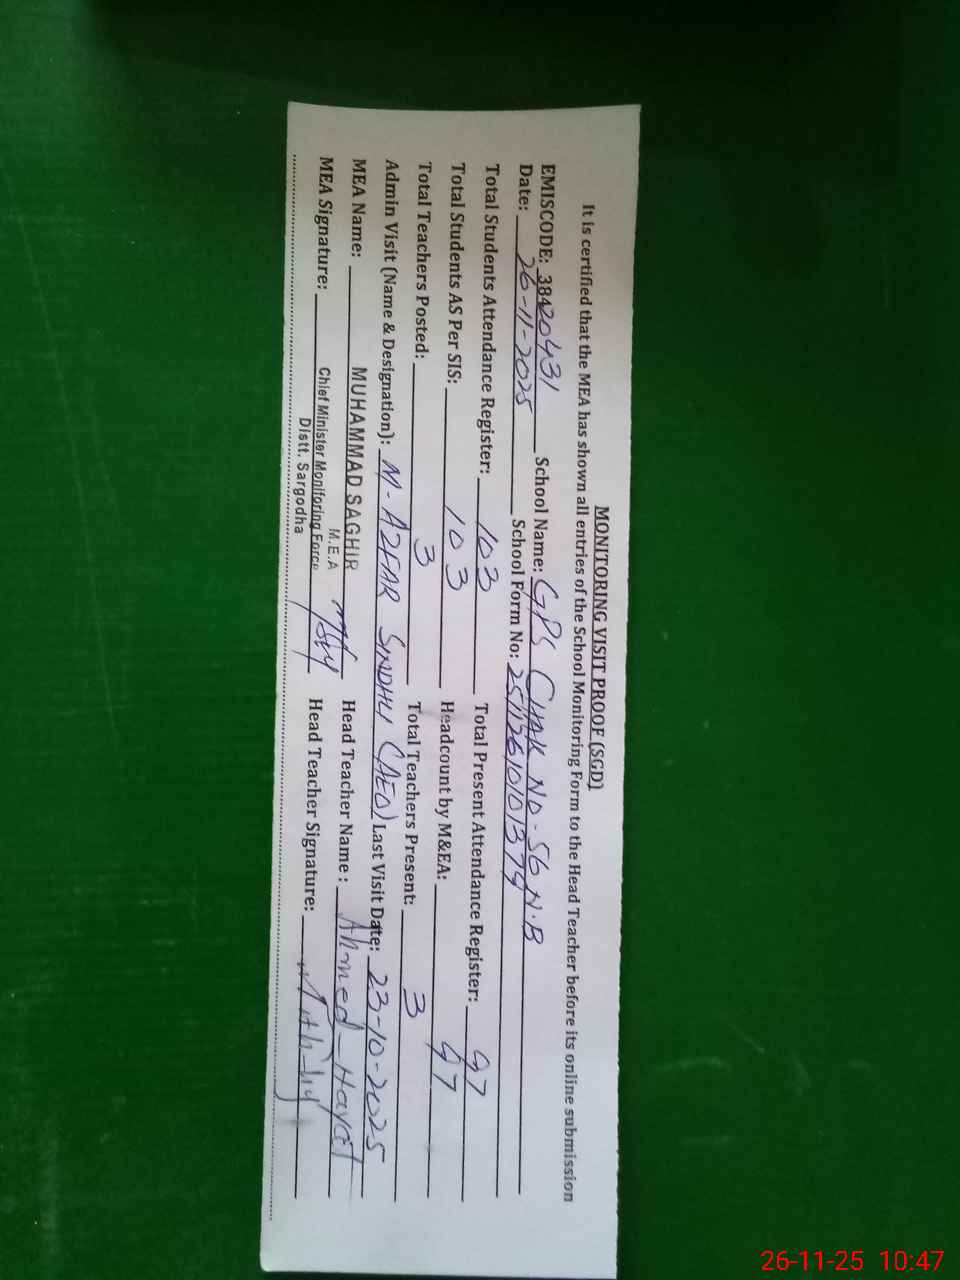 MONITORING VISIT PROOF (SGD)
It is certified that the MEA has shown all entries of the School Monitoring Form to the Head Teacher before its online submission
EMISCODE: 38420431 School Name: GPS CHAK NO-56 N.B
Date: 26-11-2025 School Form No: 25112610101374
Total Students Attendance Register: 103 Total Present Attendance Register: 97
Total Students AS Per SIS: 103 Headcount by M&EA: 97
Total Teachers Posted: 3 Total Teachers Present: 3
Admin Visit (Name & Designation): M-AZFAR SINDHU (AEO) Last Visit Date: 23-10-2025
MEA Name: MUHAMMAD SAGHIR Head Teacher Name : Ahmed-Hayat
M.E.A
MEA Signature: Chief Minister Monitoring Force Head Teacher Signature:
Distt. Sargodha
26-11-25 10:47